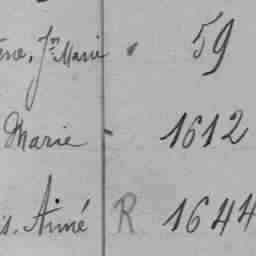 Jn Marie " 59
Marie - 1612
Aimé R 1644